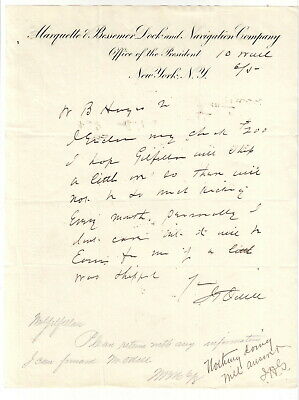 Marquette & Bessemer Dock and Navigation Company
Office of the President 10 Wall
New York. N.Y.
W B
I Enclose my check $200
I hope Gilfillan will ship
a little or so there will
not be so much
Every month. personally I
dont care but it will be
for me if a little
was shipped
Mr Gilfillan
Please return with any information
I can furnish Mr Odell.
Nothing doing
will answer